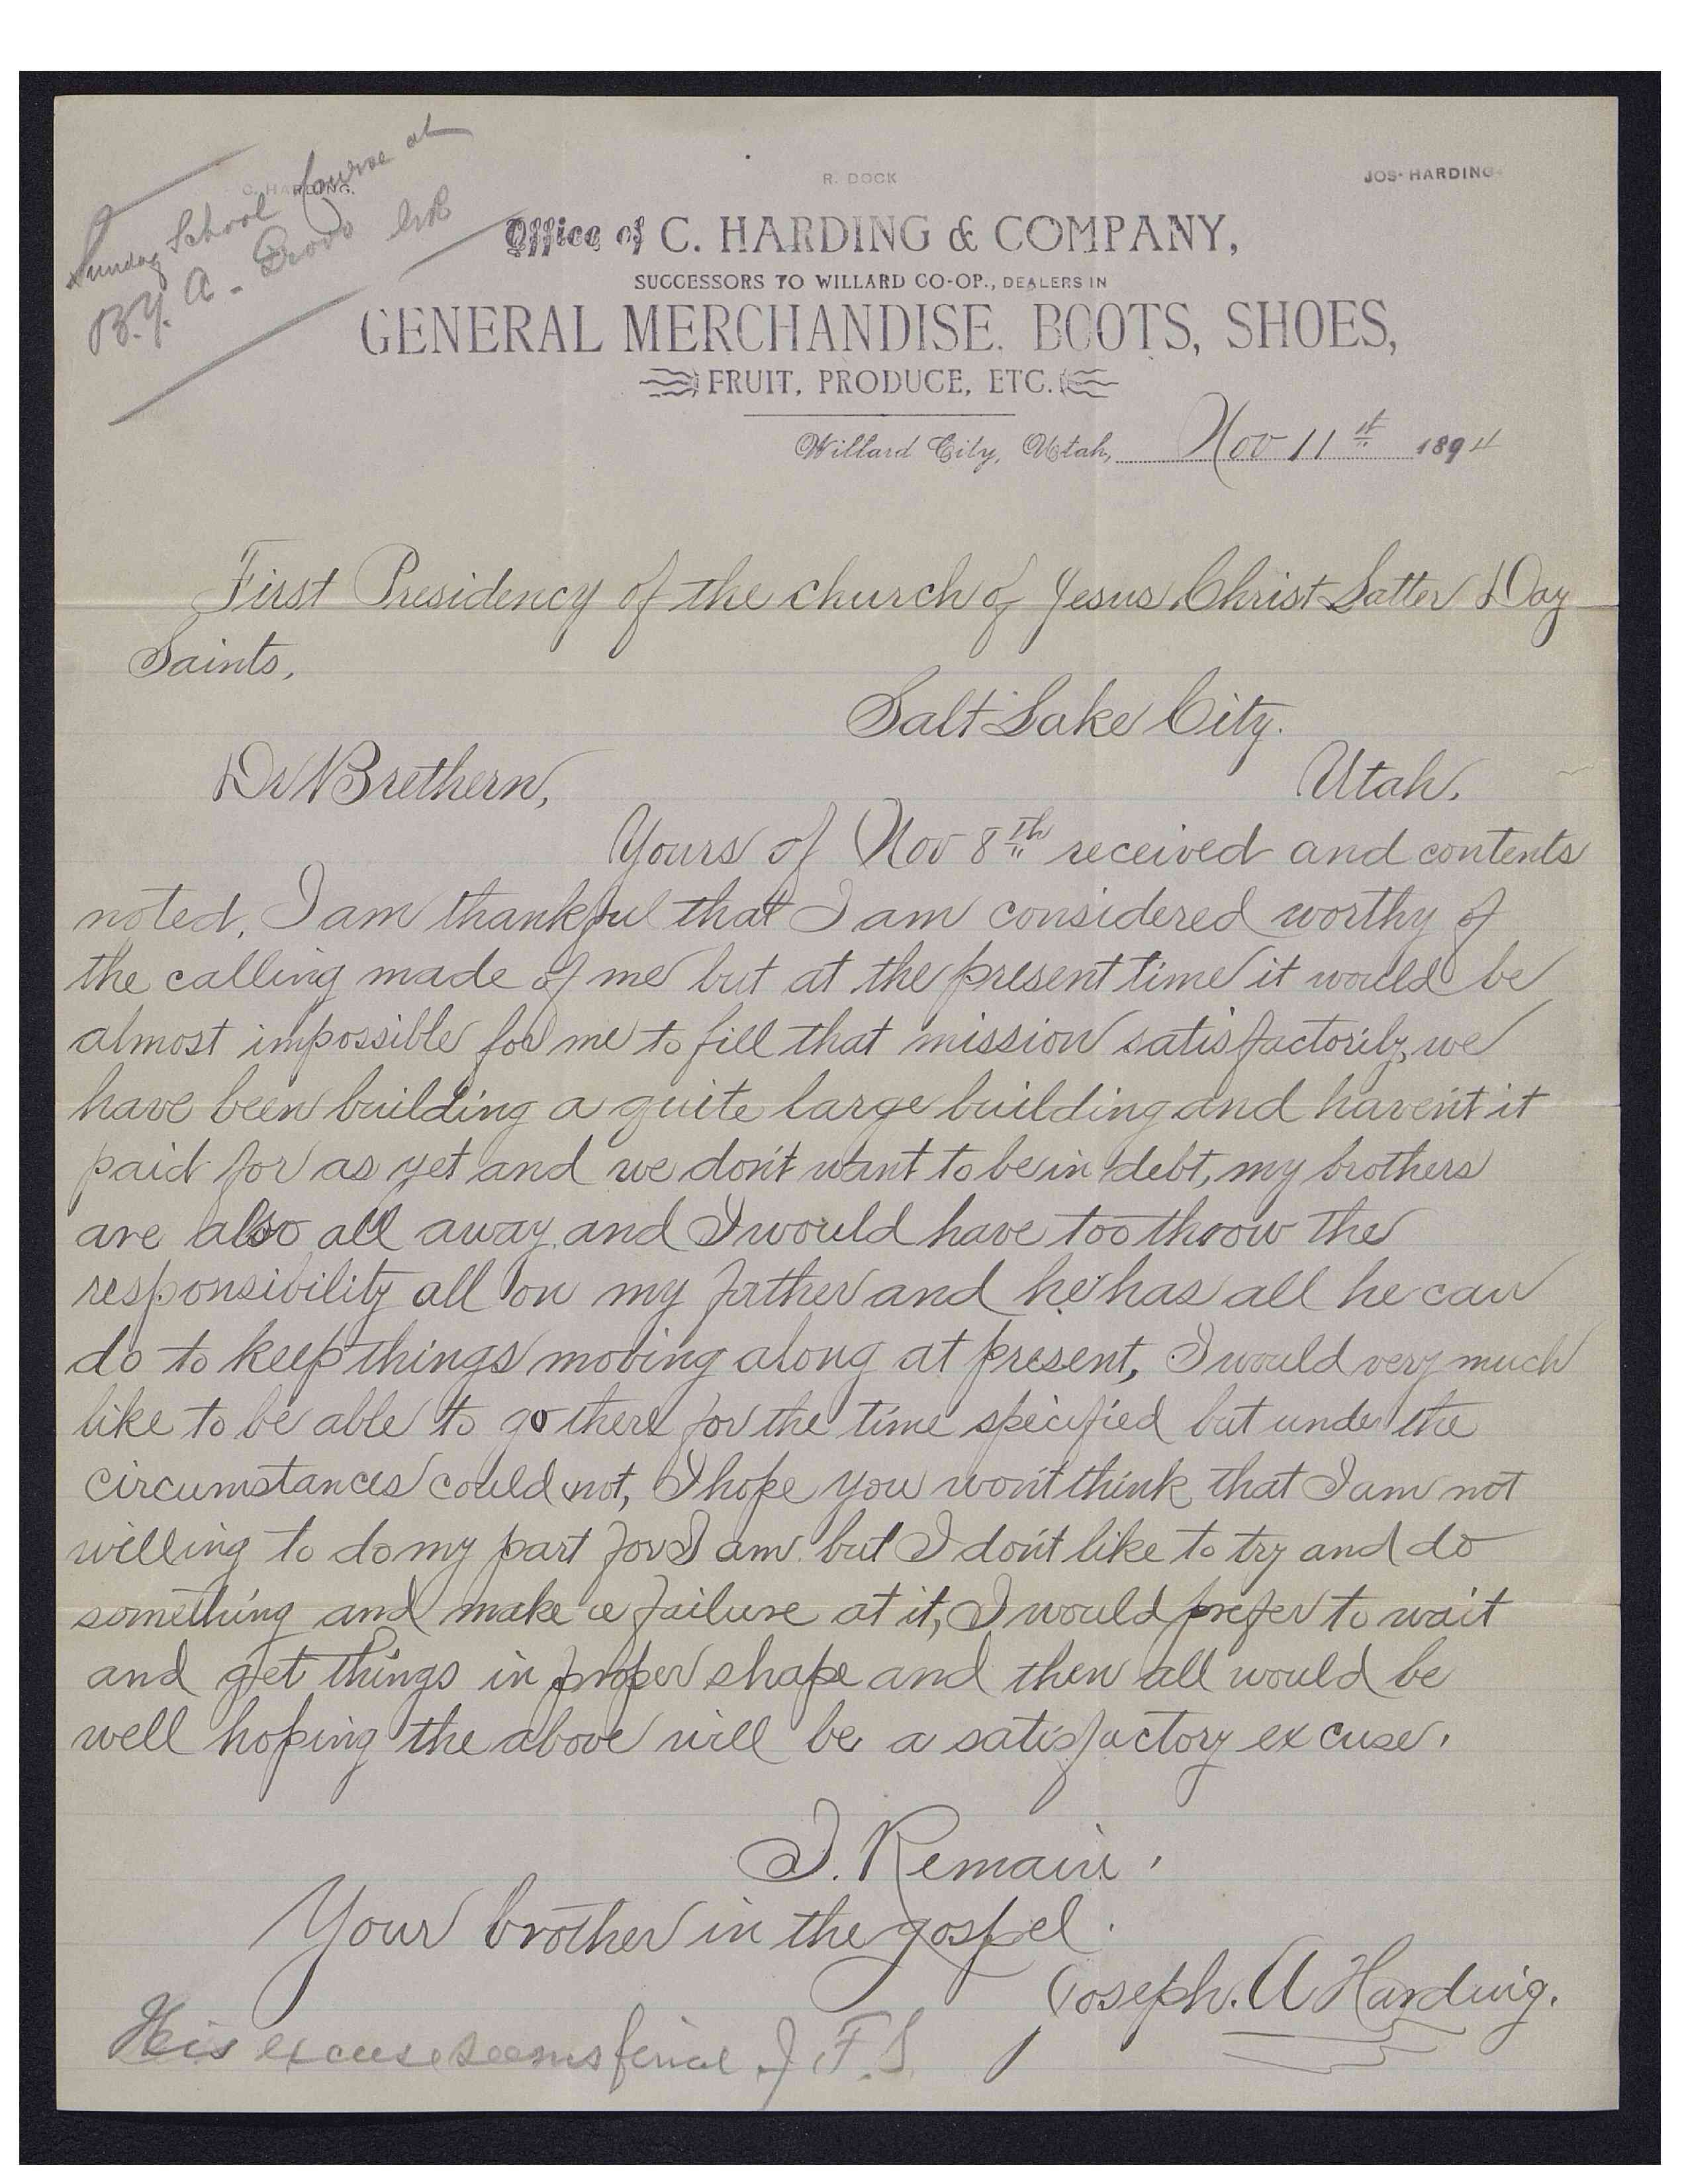 Sunday School Course at
B.Y. A. - Provo
C. HARDING.
R. DOCK
JOS. HARDING
Office of C. HARDING & COMPANY,
SUCCESSORS TO WILLARD CO-OP., DEALERS IN
GENERAL MERCHANDISE. BOOTS, SHOES,
FRUIT, PRODUCE, ETC.
Willard City, Utah, Nov 11th 1894
First Presidency of the church of Jesus Christ Latter Day
Saints,
Salt Lake City.
Dr Brethern,
Utah.
Yours of Nov 8th received and contents
noted. I am thankful that I am considered worthy of
the calling made of me but at the present time it would be
almost impossible for me to fill that mission satisfactorily, we
have been building a quite large building and haven't it
paid for as yet and we don't want to be in debt, my brothers
are also all away and I would have too throow the
responsibility all on my father and he has all he can
do to keep things moving along at present, I would very much
like to be able to go there for the time specified but under the
circumstances could not, I hope you won't think that I am not
willing to do my part for I am but I don't like to try and do
something and make a failure at it, I would prefer to wait
and get things in proper shape and then all would be
well hoping the above will be a satisfactory excuse.
I. Remain.
Your brother in the gospel.
Joseph. A Harding.
His excuse seems J. F. S.